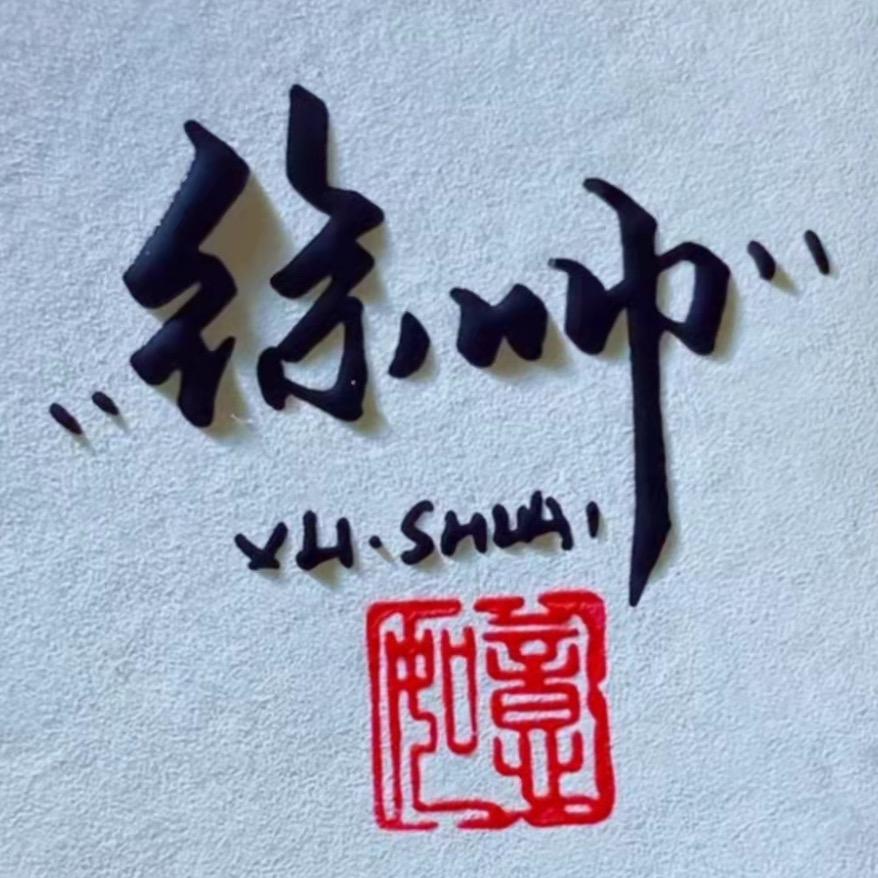 "徐帅"
XU.SHUAI
如意